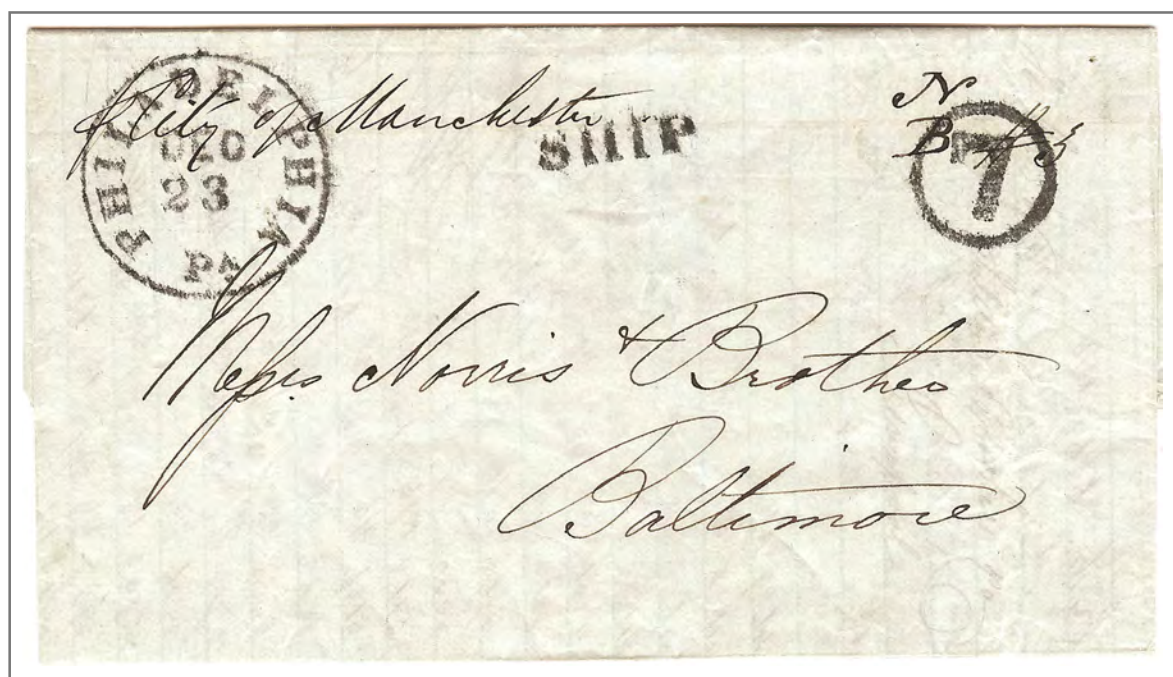 PHILADELPHIA Pa
DEC
23
p City of Manchester
SHIP
N
B # 3
7
Messrs Norris & Brother
Baltimore